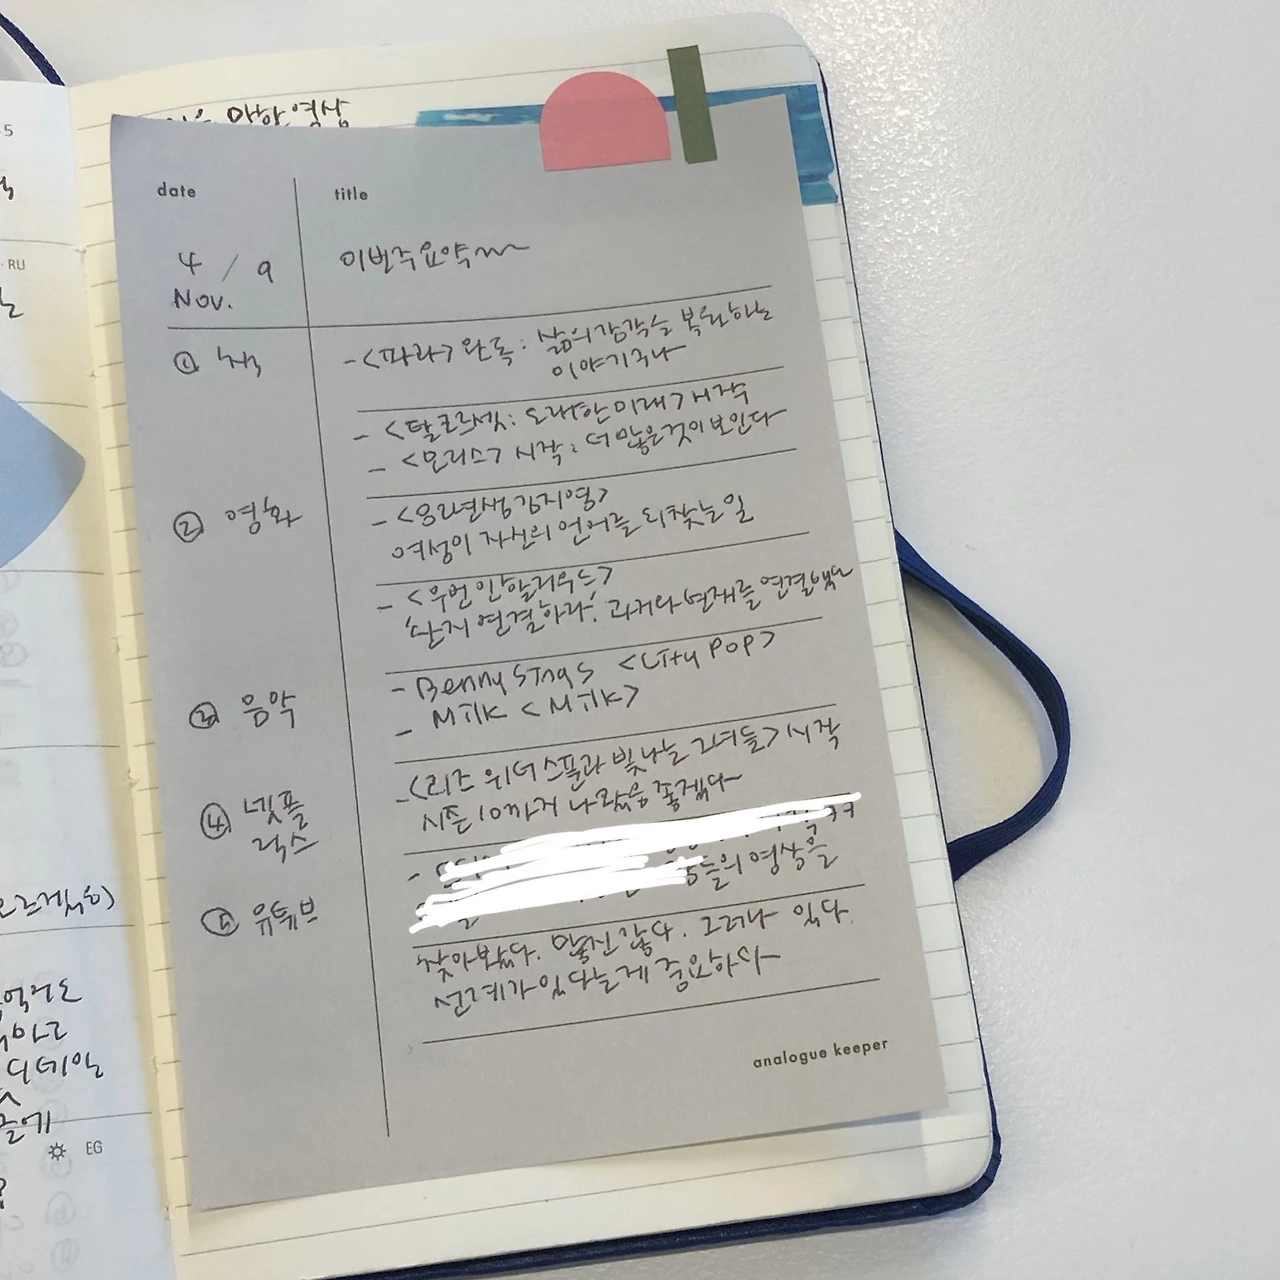 마한 영상
date title
4 / 9 이번주요약
Nov.
① 책 - <파과> 완독: 삶의 감각을 복원하는
이야기구나
- <탈코르셋: 도래한 미래> 시작
- <모리스> 시작: 더 많은 것이 보인다
② 영화 - <82년생 김지영>
여성이 자신의 언어를 되찾는 일
- <우먼 인 할리우드>
'단지 연결하라!' 과거와 현재를 연결했다
③ 음악 - Benny Sings <City Pop>
- Milk <Milk>
④ 넷플 - <리즈 위더스푼과 빛나는 그녀들> 시작
릭스 시즌 10까지 나왔음 좋겠다
⑤ 유튜브 들의 영상을
찾아봤다. 많진 않다. 그러나 있다.
선례가 있다는 게 중요하다
analogue keeper
5
RU
디데일
EG